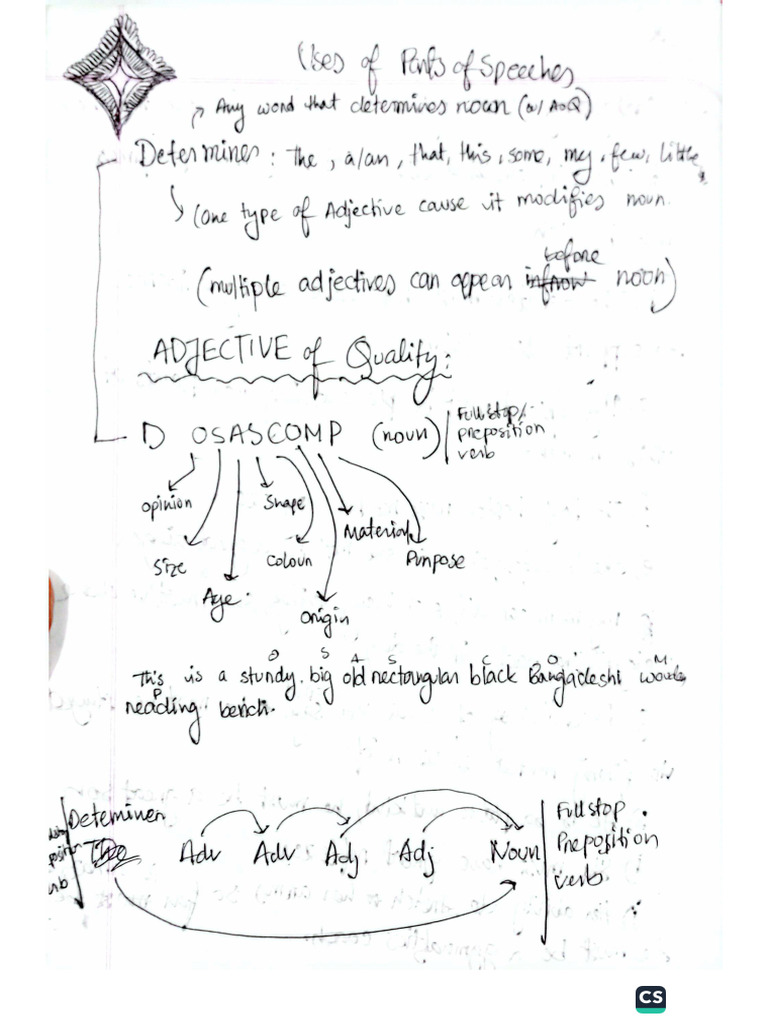 Uses of Parts of Speeches
Any word that determines noun (w/ AoQ)
Determiner: The, a/an, that, this, some, my, few, little
(one type of Adjective cause it modifies noun.
(multiple adjectives can appear before noon)
ADJECTIVE of Quality:
D OSASCOMP (noun)
Full stop/
preposition
verb
opinion
Shape
Material
Size
Colour
Purpose
Age.
Origin
O S A S C O M
This is a sturdy. big old rectangular black Bangladeshi wooden
P
reading bench.
Deteminer
Adv Adv Adj Adj Noun
Full stop.
Preposition
verb
CS